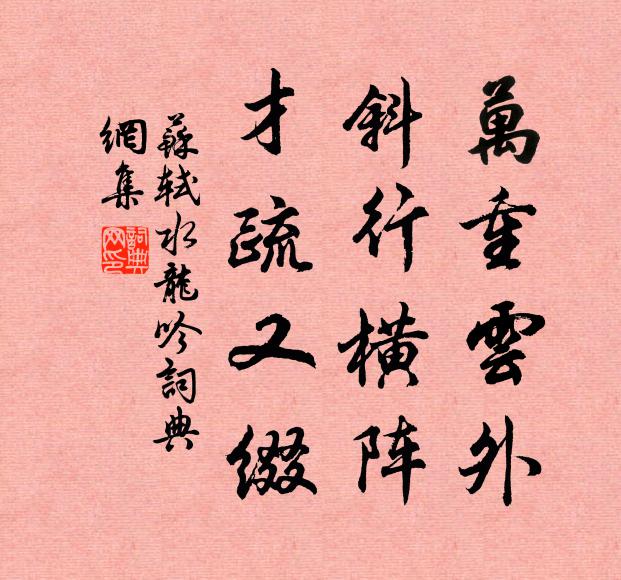 萬重雲外
斜行橫阵
才疏又缀
蘇軾水龍吟詞典
網集
詞典
网印